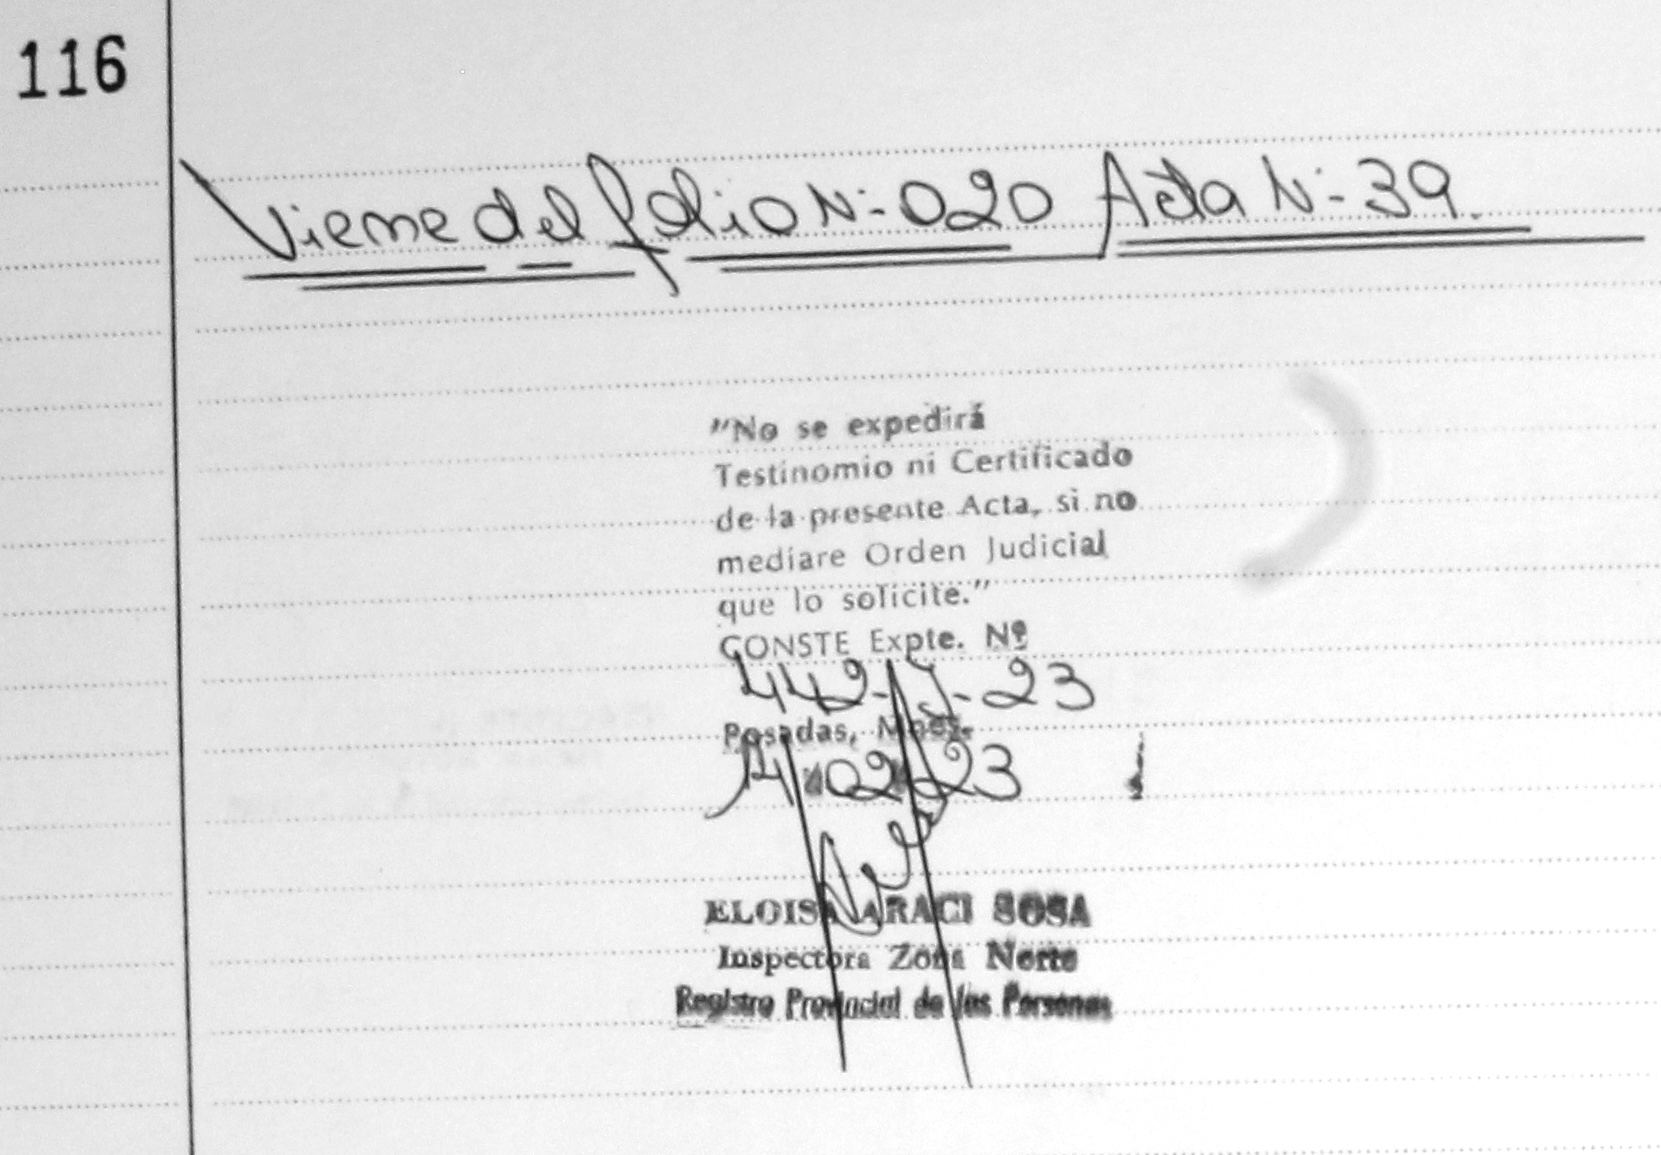 116
Viene del folio N:- 020 Acta N:- 39.
"No se expedirá
Testinomio ni Certificado
de la presente Acta, si no
mediare Orden Judicial
que lo solicite."
CONSTE Expte. Nº
442-J-23
Posadas, Mnes.
02 23
ELOISA ARACI SOSA
Inspectora Zona Norte
Registro Provincial de las Personas